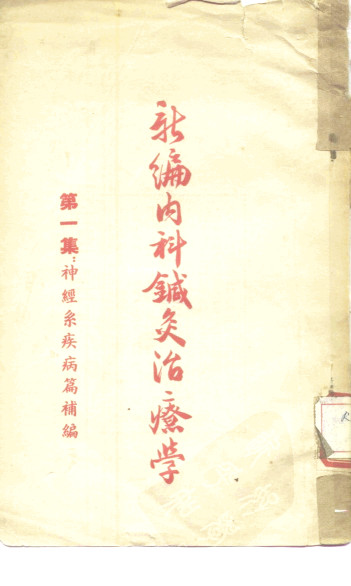 新编内科鍼灸治療学
第一集：神經系疾病篇補編